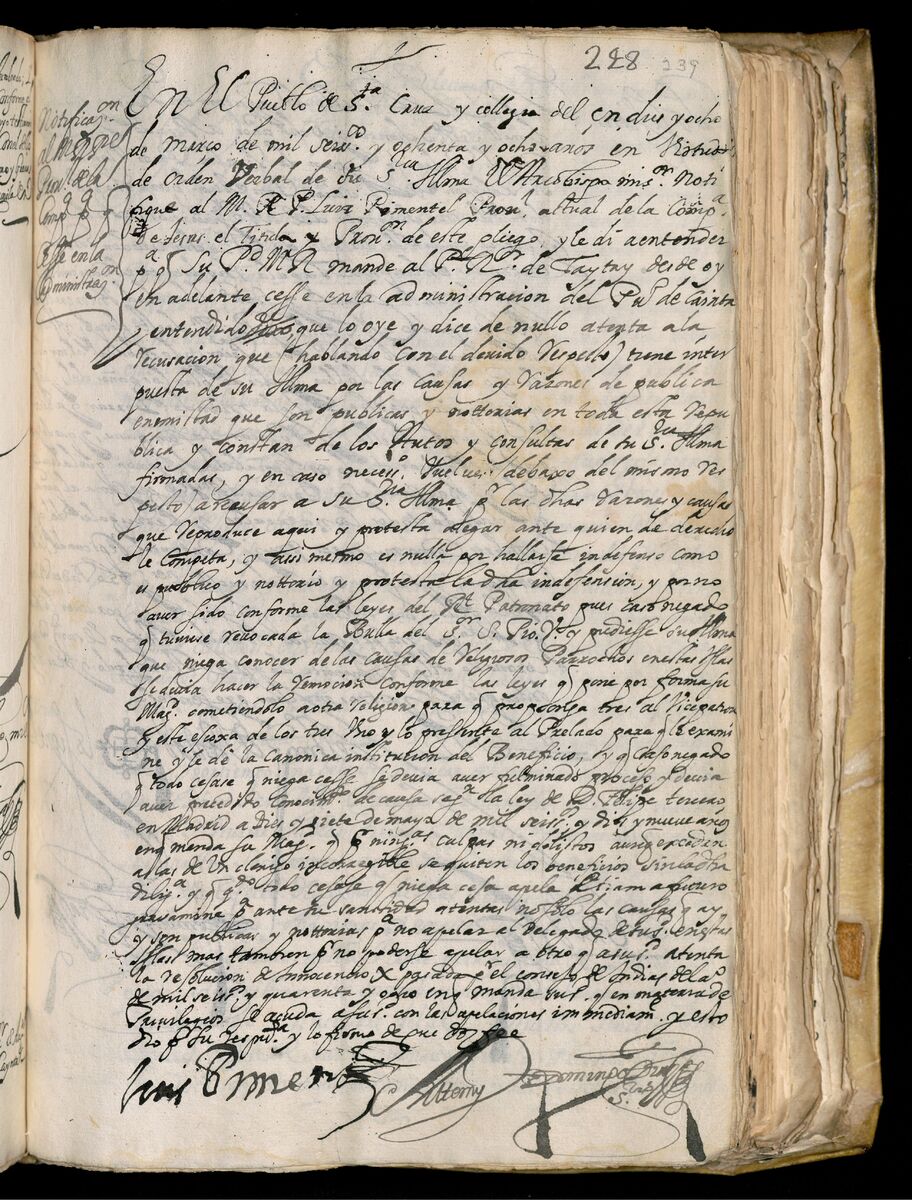 228 239
Notificaⁿ
al M R P e
Prou.ˡ de la
Comp.ᵃ pᵃ q
Cesse en la
administraⁿ
En El Pueblo de S.ᵗᵃ Cruz y collegio del en dies y ocho
de março de mil seis.ᵒˢ y ochenta y ocho años en Virtud
de orden Verbal de su S.ʳⁱᵃ Illma el Arcobispo mi s.ʳ Noti
fique al M. R. P. Luis Pimentel Prou.ˡ actual de la Comp.ᵃ
de Jesus el Titulo y Prou.ⁿ de este pliego, y le di a entender
pᵃ q Su P.ᵈ M R mande al P.ᵉ Rʳ. de Taytay desde oy
en adelante cesse en la administracion del Pu.ᵒ de Cainta
y entendido dixo que lo oye y dice de nullo atenta a la
recusacion que (hablando con el devido respecto) tiene inter
puesta de su Illma por las causas y razones de publica
enemistad que son publicas y nottorias en toda esta repu
blica y constan de los Autos y consultas de su S.ʳⁱᵃ Illma
firmadas, y en caso neces.ᵒ buelue (debaxo del mismo res
pecto) a recusar a su S.ʳⁱᵃ Illma pʳ las dhas razones y causas
que reproduce aqui y protesta alegar ante quien de derecho
le competa, y assi mesmo es nulla por hallarse indefenso como
es publico y nottorio y protesta la dha indefension, y por no
aver sido conforme las leyes del R.ˡ Patronato pues caso negado
q tuuiese reuocada la Bulla del S.ʳ S. Pio. Vᵗᵒ y pudiesse su Illma
que niega conocer de las causas de religiosos Parrochos en estas Islas
se deuia hacer la remocion conforme las leyes q pone por forma su
Mag.ᵈ cometiendolo a otra religion para q proponga tres al Vicepatron
y este escoxa de los tres Uno y lo presente al Prelado para q le exami
ne y le dè la Canonica institucion del Beneficio, y q caso negado
q todo cesase q niega cesse se deuia aver fulminado proceso y deuia
aver precedido conocim.ᵗᵒ de causa seg.ⁿ la ley de D. Felipe tercero
en Madrid a dies y siete de mayo de mil seis.ˢ y dies y nueve años
en q manda su Mag.ᵈ q pʳ ning.ᵃˢ culpas ni delictos aunq excedan
a las de un clerigo incorregible se quiten los beneficios sin la dha
dilig.ᵃ y q q.ᵈᵒ todo cesase q niega cesa apela etiam a futuro
grauamine pᵃ ante su santidad atentas no solo las causas q ay
y son publicas y nottorias pᵃ no apelar al Delegado de su s.ᵈ en estas
Islas mas tambien pʳ no poderse apelar a otro q a su s.ᵈ atenta
la resolucion de Innocencio X pasada pʳ el consejo de Indias del a.ᵒ
de mil seis.ˢ y quarenta y ocho en q manda su s.ᵈ q en materia de
Priuilegios se acuda a su s.ᵈ con las apelaciones immediam.ᵗᵉ y esto
dio pʳ su resp.ᵗᵃ y lo firmo de que doy fee
Luis Pimentel
Domingo Dias